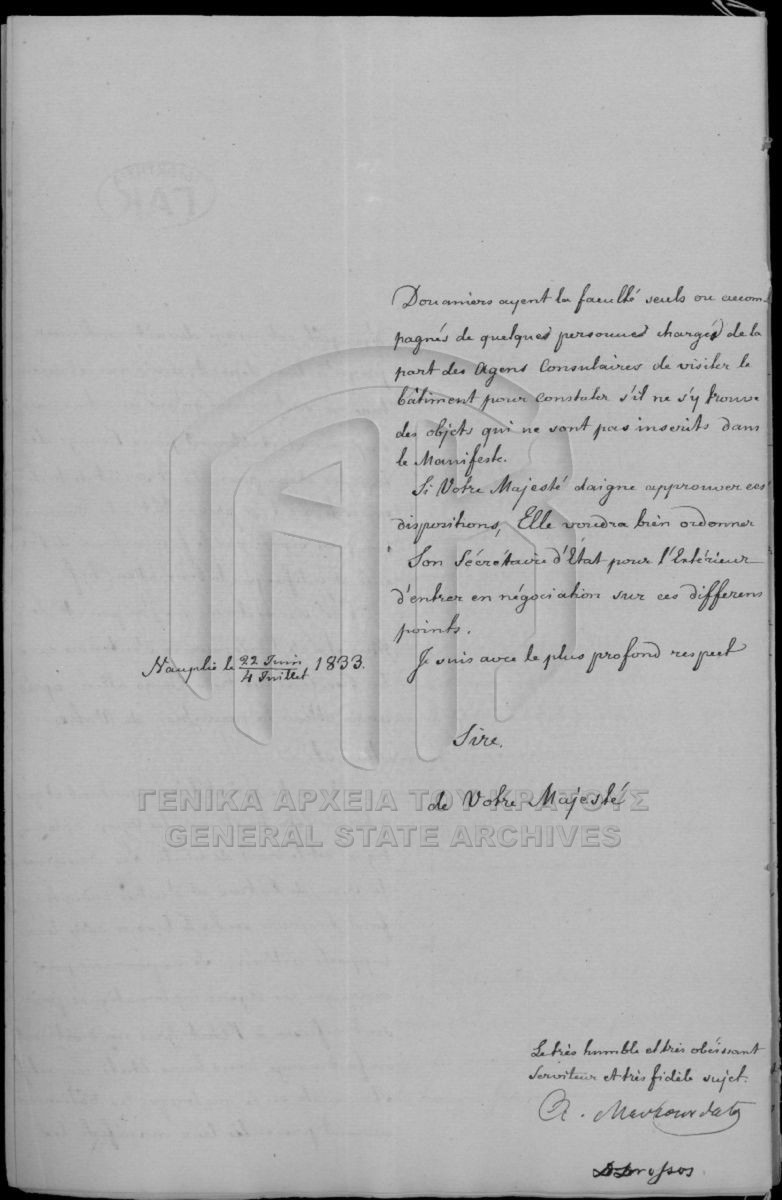 Douaniers ayent la faculté seuls ou accom-
pagnés de quelques personnes chargés de la
part des Agens Consulaires de visiter le
bâtiment pour constater s'il ne s'y trouve
des objets qui ne sont pas inscrits dans
le Manifeste.
Si Votre Majesté daigne approuver ces
dispositions, Elle voudra bien ordonner
Son Sécrétaire d'État pour l'Intérieur
d'entrer en négociation sur ces differens
points.
Je suis avec le plus profond respect
Nauplie le 22 Juin / 4 Juillet 1833.
Sire,
de Votre Majesté
ΓΕΝΙΚΑ ΑΡΧΕΙΑ ΤΟΥ ΚΡΑΤΟΥΣ
GENERAL STATE ARCHIVES
Le très humble et très obéissant
Serviteur et très fidèle sujet.
A. Mavrocordato
Drossos
ΓΑΚ